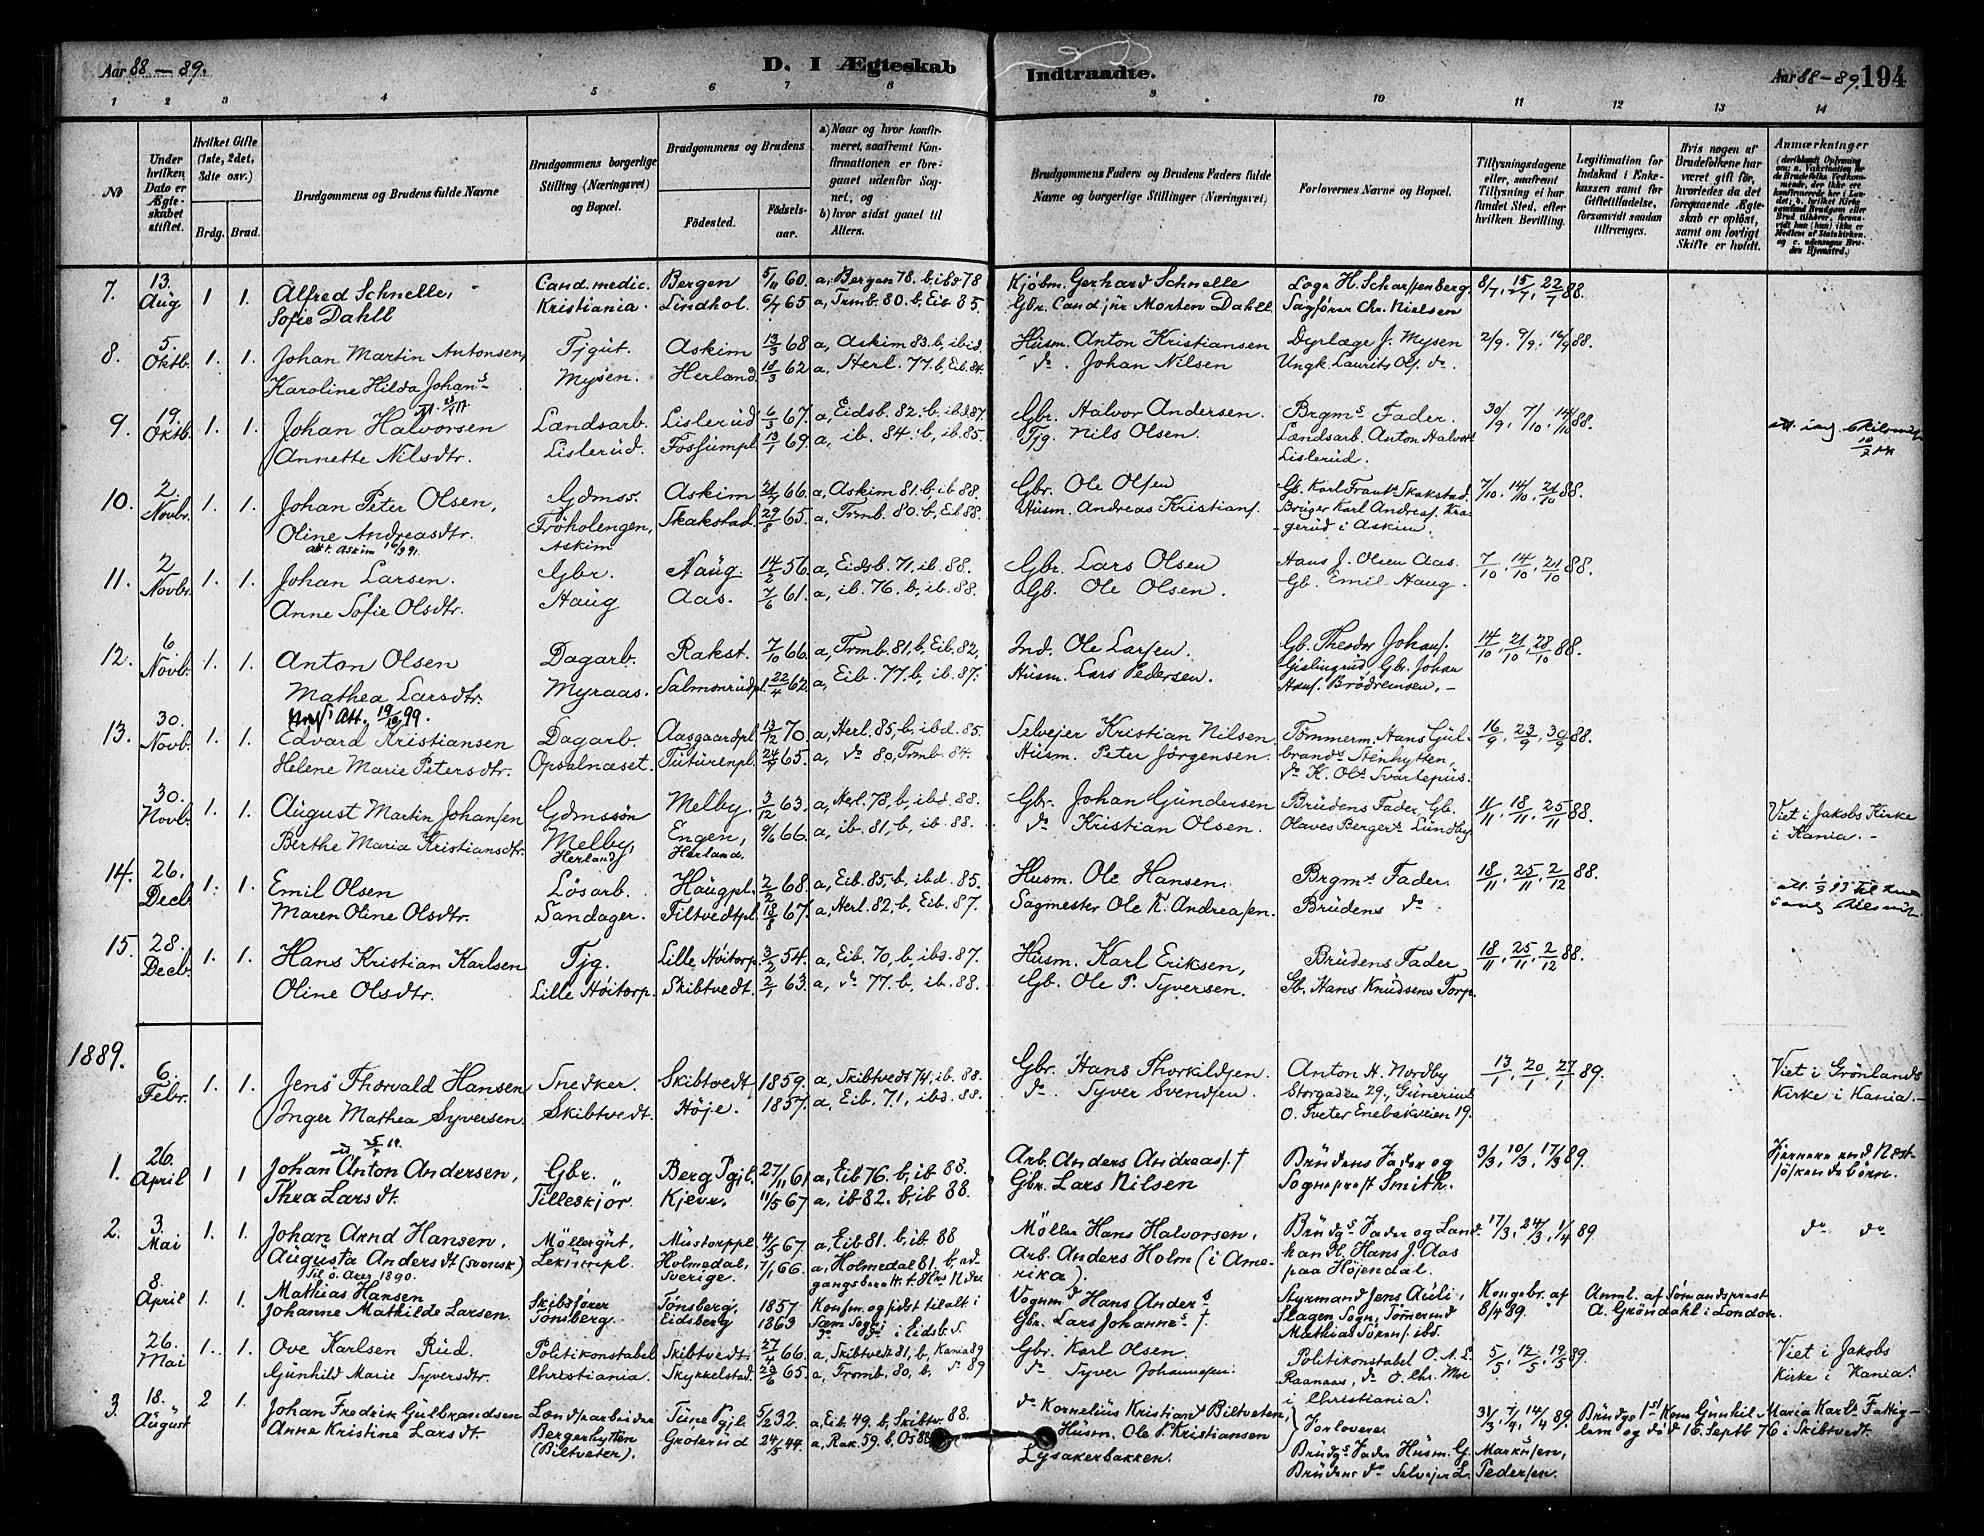 Aar 88 – 89.
D. I Ægteskab
Indtraadte.
Aar 88 – 89. 194
1 2 3 4 5 6 7 8 9 10 11 12 13 14
No
Under hvilken Dato er Ægteskabet stiftet.
Hvilket Gifte (1ste, 2det, 3die osv.)
Brdg. Brud.
Brudgommens og Brudens fulde Navne
Brudgommens borgerlige Stilling (Næringsvei) og Bopæl.
Brudgommens og Brudens
Fødested. Fødselsaar.
a) Naar og hvor konfirmeret, saafremt Konfirmationen er foregaaet udenfor Sognet, og
b) hvor sidst gaaet til Alters.
Brudgommens Faders og Brudens Faders fulde Navne og borgerlige Stillinger (Næringsvei)
Forlovernes Navne og Bopæl.
Tillysningsdagene eller, saafremt Tillysning ei har fundet Sted, efter hvilken Bevilling.
Legitimation for Indskud i Enkekassen samt for Giftetilladelse, forsaavidt saadan tiltrænges.
Hvis nogen af Brudefolkene har været gift før, hvorledes da det foregaaende Ægteskab er opløst, samt om lovligt Skifte er holdt.
Anmærkninger
7. 13. Aug 1 1. Alfred Schnelle, Cand. medic. Bergen 5/11 60. a, Bergen 78. b, ibd 78 Kjöbm. Gerhard Schnelle Loge H. Scharffenberg 8/7, 15/7, 22/7 88.
Sofie Dahll Kristiania Lindhol. 6/7 65 a, Trmb. 80. b, Eib 85. Gbr. Cand jur Morten Dahll Sagförer Chr. Nielsen
8. 5. Oktb. 1. 1. Johan Martin Antonsen, Tjgut. Askim 13/3 68 a, Askim 83. b, ibd. Husm. Anton Kristiansen Dyrlæge J. Mysen 2/9. 9/9. 16/9 88.
Karoline Hilda Johans Mysen. Herland 18/3 62 a, Herl. 77. b, Eib. 84. do. Johan Nilsen Ungk. Laurits Ols. do.
9. 19. Oktb. 1. 1. Johan Halvorsen Landsarb. Lislerud 6/3 67. a, Eidsb. 82. b, ibd 87. Gbr. Halvor Andersen. Brgms. Fader. 30/9, 7/10, 14/10 88.
Annette Nilsdtr. Lislerud. Fossumpl 13/1 69. a, ib. 84. b, ib. 85. Tjg. Nils Olsen. Landsarb. Anton Halvors Lislerud.
10. 2. Novbr. 1. 1. Johan Peter Olsen, Gdmss. Askim 66. a, Askim 81. b, ib 88. Gbr. Ole Olsen Gb. Karl Frants. Skakstad. 7/10. 14/10. 21/10 88.
Oline Andreasdtr. Fröholengen, Askim Skakstad. 29/8 65. a, Trmb. 80. b, Eib 88. Husm. Andreas Kristians. Bruger Karl Andreas. Kragerud i Askim.
att. t. Askim 16/3 91.
11. 2 Novbr. 1. 1. Johan Larsen. Gbr. Haug. 14/2 56. a, Eidsb. 71, ib. 88. Gbr. Lars Olsen Hans J. Olsen Aas. 7/10, 14/10, 21/10 88.
Anne Sofie Olsdtr. Haug Aas. 7/6 61. a, ib. 76. b, ib. 88. Gb. Ole Olsen. Gb. Emil Haug.
12. 6 Novb. 1. 1. Anton Olsen Dagarb. Rakst. 7/10 66. a, Trmb. 81, b, Eib. 82, Ind. Ole Larsen. Gb. Theodor Johans. 14/10, 21/10, 28/10 88.
Mathea Larsdtr. Myraas. Salmonrudpl. 22/4 62. a, Eib. 77. b, ib. 87. Husm. Lars Pedersen. Gislingrud, Gbr. Johan Hans. Brödremosen. –
Att. 19/10 99.
13. 30. Novb. 1. 1. Edvard Kristiansen Dagarb. Aasgaardpl. 13/12 70. a, Herl. 85, b, ibd. 85. Selvejer Kristian Nilsen Tömmerm. Hans Gulbrands. Stenhytten, 16/9, 23/9, 30/9 88.
Helene Marie Petersdtr. Opsalnæset. Tuturenpl. 65. a, do 80, Trmb. 84. Husm. Peter Jörgensen. do K. Ols. Svartepus.
30. Novb. 1. 1. August Martin Johansen Gdmssön Melby. 3/12 63. a, Herl. 78, b, ibd. 88. Gbr. Johan Gundersen Brudens Fader Gb. 11/11, 18/11, 25/11 88. Viet i Jakobs Kirke
Berthe Maria Kristiansdtr. Melby, Herland Engen, Herland. 9/6 66. a, ib. 81, b, ib. 88. do Kristian Olsen. Olaves Bergers. Lundby i Kania. –
14. 26. Decb. 1. 1. Emil Olsen Lösarb. Haugpl. 2/2 68. a, Eib. 85. b, ibd. 85. Husm. Ole Hansen. Brgms. Fader. 18/11, 25/11, 2/12 88.
Maren Oline Olsdtr. Sandager. Tiltvedtpl. 18/8 67. a, Herl. 82, b, Eib. 87. Sagmester Ole K. Andreasen. Brudens do
15. 28. Decb. 1. 1. Hans Kristian Karlsen Tjg. Lille Höitorp. 3/2 54. a, Eib. 70, b, ibd. 87. Husm. Karl Eriksen, Brudens Fader 18/11, 25/11, 2/12 88.
Oline Olsdtr. Lille Höitorp. Skibtvedt. 2/1 63. a, do 77. b, ib. 88. Gb. Ole P. Syversen. Gb. Hans Knudsens Torp.
1889.
6. Febr. 1. 1. Jens Thorvald Hansen Snedker. Skibtvedt 1859. a, Skibtvedt 74, ib. 88. Gbr. Hans Thorkildsen. Anton H. Nordby 13/1, 20/1, 27/1 89. Viet i Grönlands
Inger Mathea Syversen. Skibtvedt. Höje. 1857. a, Eib. 71, ibd. 88. do. Syver Svendsen. Storgaden 29, Gunerius O. Sveter Enebakveien 19. Kirke i Kania. –
1. 26. April 1 1 Johan Anton Andersen, Gbr. Berg Pgjl. 27/11 61 a, Eib 76. b, ib 88. Arb. Anders Andreass. † Brudens Fader og 3/3, 10/3, 17/3 89.
Thea Larsdt. Tilleskjör. Kjeve. 11/5 67 a, ib 82. b, ib 88. Gbr. Lars Nilsen Sogneprest Smith. söskendebörn.
2. 3. Mai 1. 1. Johan Arnd Hansen, Möllergut, Mustorppl. 4/5 67. a, Eib 81. b, ib 88 Möller Hans Halvorsen, Brudgs. Fader og Land- 17/3, 24/3, 1/4 89 do do
Augusta Andersdt (svensk) Lekumpl. Holmedal, Sverige. 7/1 66. a, Holmedal 81. b, Arb. Anders Holm (i Amerika). han H. Hans J. Aas paa Höjendal.
8. April 1. 1. Mathias Hansen Skibsförer Tönsberg, 1857 Konfm. og sidst til alt i Hans Anders Styrmand Jens Auli, Kongebr. af Anml. af Sömandsprest
Johanne Mathilde Larsen. Tönsberg. Eidsberg 1863 Sæm Sogn do i Eidsb. S. Gbr. Lars Johannes. †. Slagen Sogn, Tömmerm. Mathias Sörens. ibd. 8/4 89. A. Gröndahl i London.
26. Mai 1. 1. Ove Karlsen Rud. Politikonstabel Skibtvedt. 27/4 66. a, Skibtvedt 81, b, Kania 89 Gbr. Karl Olsen. Politikonstabel O. A. L. 5/5, 12/5, 19/5 89. Viet i Jakobs
Gunhild Marie Syversdtr. Christiania. Skykkelstad. 65. a, Tromb. 80, b, do 89 do Syver Johannesen. Raanaas, do O. Chr. Moe i Christiania. Kirke i Kania.
3. 18. August 2 1. Johan Fredrik Gulbrandsen Landsarbeider Tune Pgjl. 5/2 32. a, Eib 49. b, Skibtv. 88. do Kornelius Kristians Biltveten, Forlovere. 31/3, 7/4, 14/4 89. Brudgs 1st Kone Gunhil Maria Karls. Fattig-
Anne Kristine Larsdt. Bergerhytten (Biltveter). Groterud 24/5 44. a, Rak. 59. b, Os 88 Husm. Ole P. Kristiansen Lysakerbakken. lem og död 16. Septb 76 i Skibtvedt.
Brudgs. Fader Husm. G. Markussen,
Brudens do Selvejer L. Pedersen.